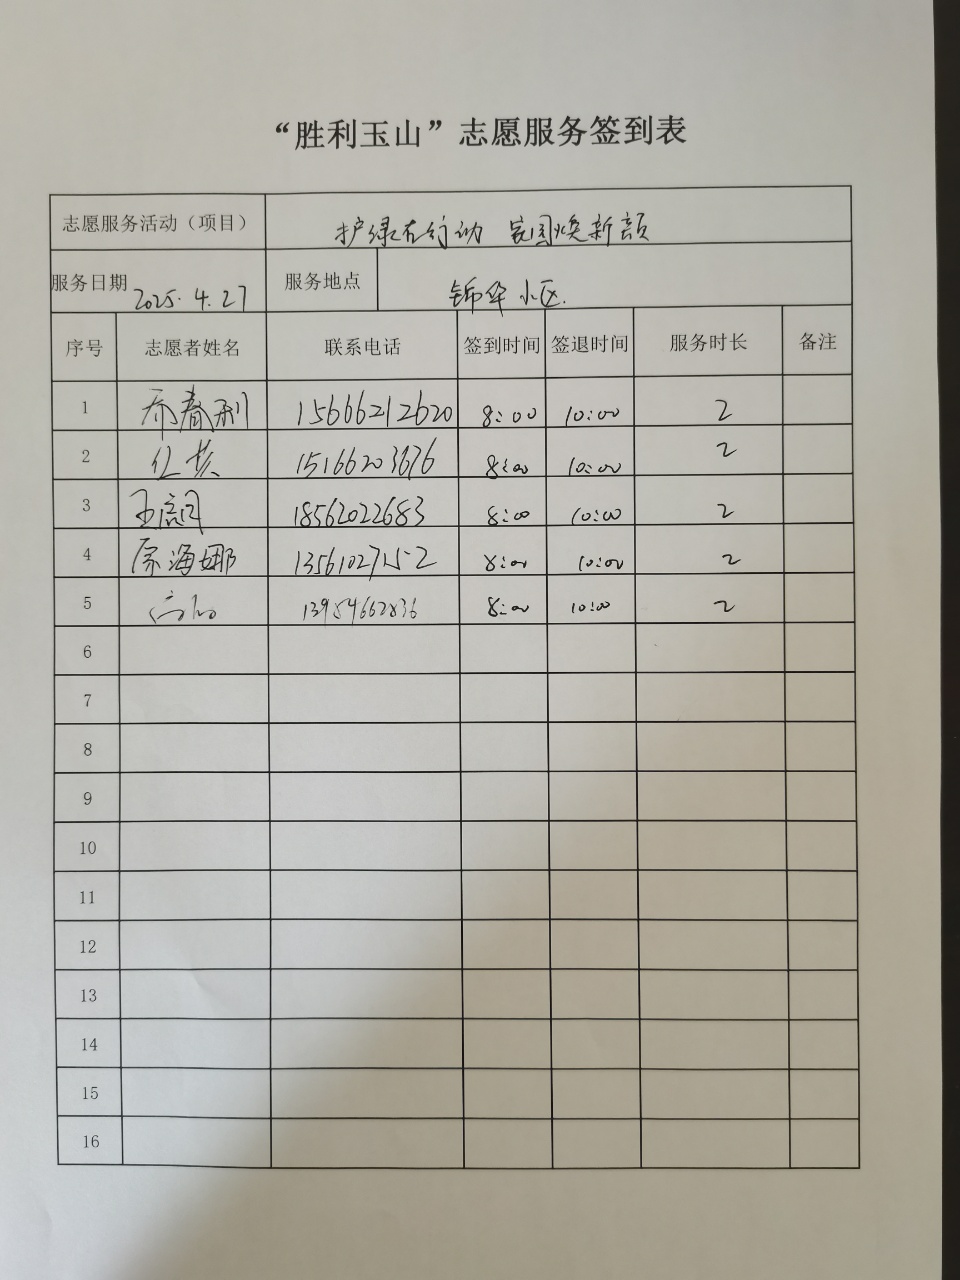 “胜利玉山”志愿服务签到表
志愿服务活动（项目） 护绿在行动 家园焕新颜
服务日期 2025.4.27 服务地点 锦华小区.
序号 志愿者姓名 联系电话 签到时间 签退时间 服务时长 备注
1 乔春利 15666212620 8:00 10:00 2
2 15166203676 8:00 10:00 2
3 18562022683 8:00 10:00 2
4 海娜 13561027152 8:00 10:00 2
5 13954662836 8:00 10:00 2
6
7
8
9
10
11
12
13
14
15
16